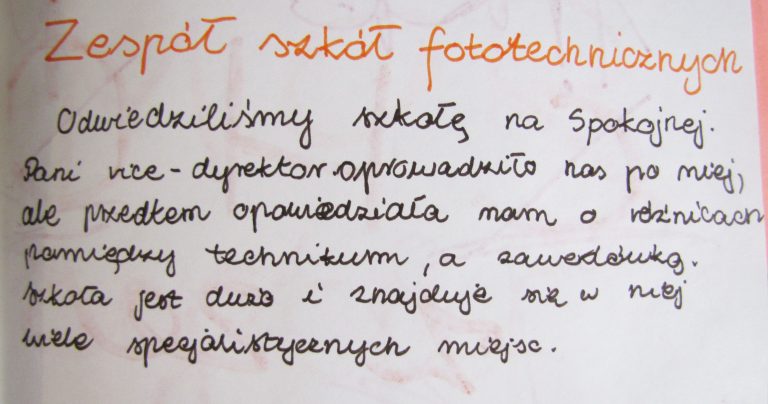 Zespół szkół fototechnicznych
Odwiedziliśmy szkołę na Spokojnej.
Pani vice-dyrektor oprowadziła nas po niej,
ale przedtem opowiedziała nam o różnicach
pomiędzy technikum, a zawodówką.
szkoła jest duża i znajduje się w niej
wiele specjalistycznych miejsc.